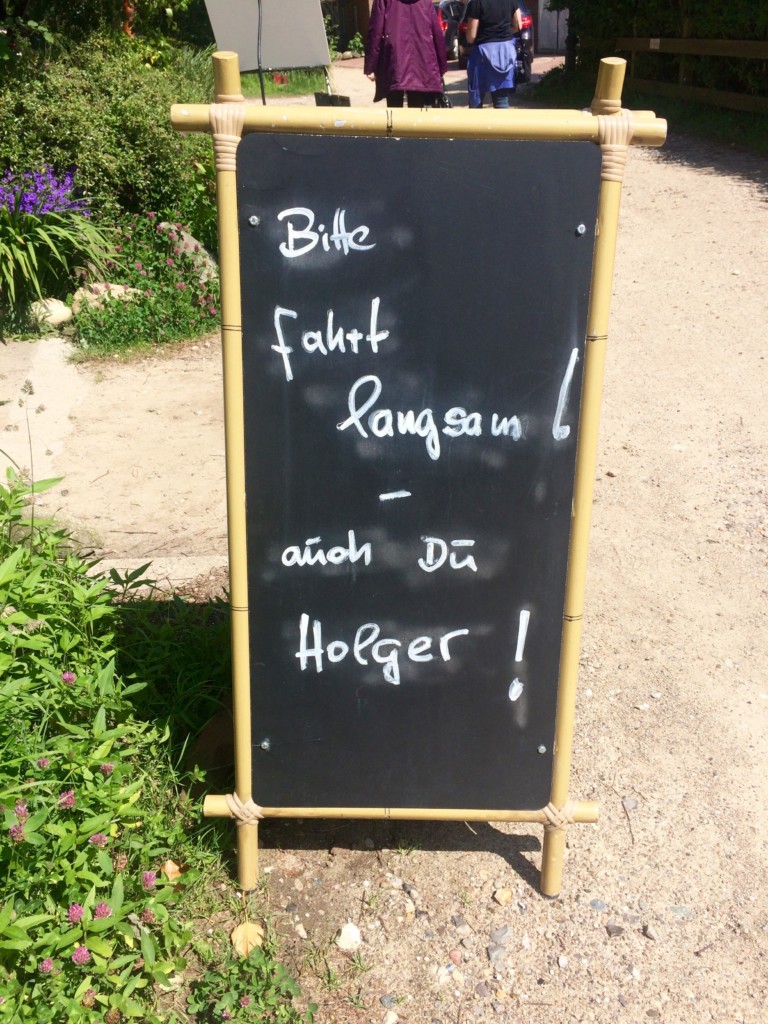 Bitte
fahrt
langsam!
-
auch Du
Holger!